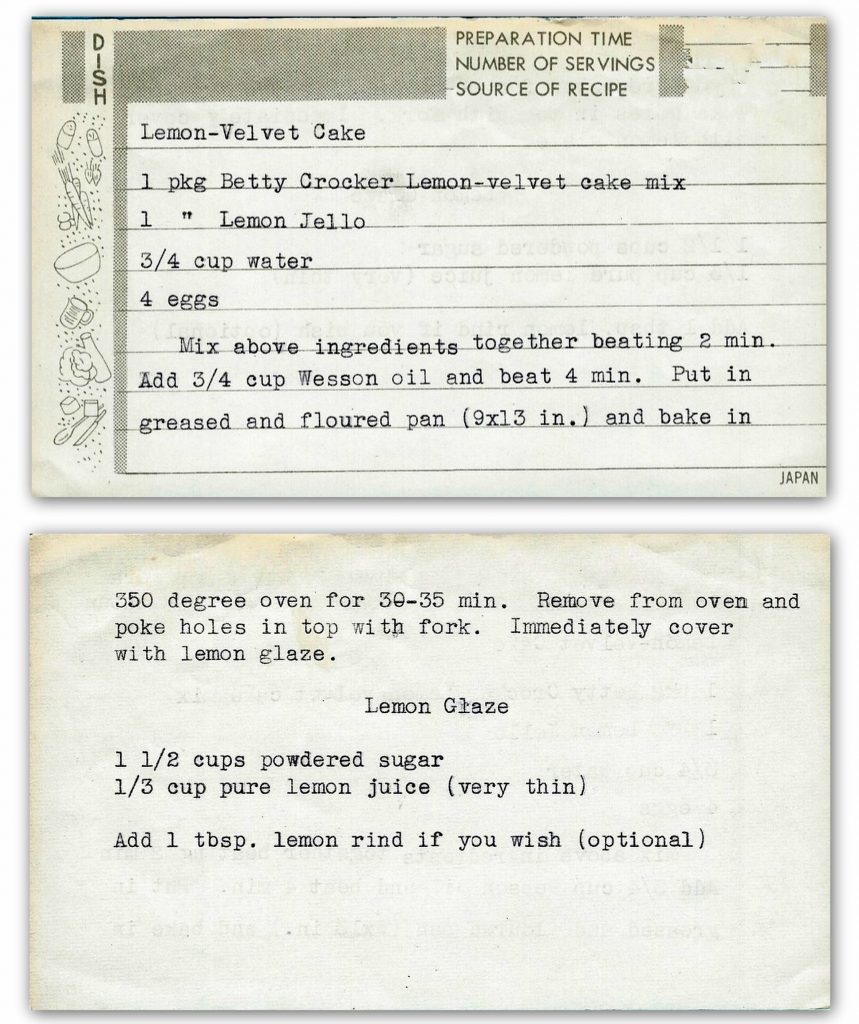 DISH
PREPARATION TIME
NUMBER OF SERVINGS
SOURCE OF RECIPE
Lemon-Velvet Cake
1 pkg Betty Crocker Lemon-velvet cake mix
1 " Lemon Jello
3/4 cup water
4 eggs
Mix above ingredients together beating 2 min.
Add 3/4 cup Wesson oil and beat 4 min. Put in
greased and floured pan (9x13 in.) and bake in
JAPAN
350 degree oven for 30-35 min. Remove from oven and
poke holes in top with fork. Immediately cover
with lemon glaze.
Lemon Glaze
1 1/2 cups powdered sugar
1/3 cup pure lemon juice (very thin)
Add 1 tbsp. lemon rind if you wish (optional)